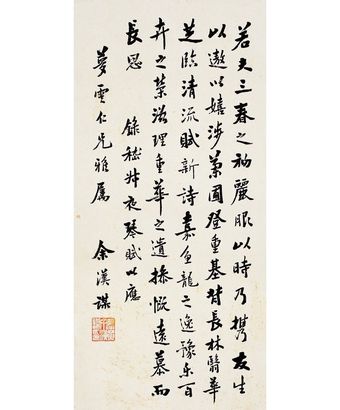 若夫三春之初麗服以時乃攜友生
以遨以嬉涉蘭圃登重基背長林翳華
芝臨清流賦新詩嘉魚龍之逸豫樂百
卉之榮滋理重華之遺操慨遠慕而
長思 錄嵇叔夜琴賦以應
夢雲仁兄雅屬 余漢謀